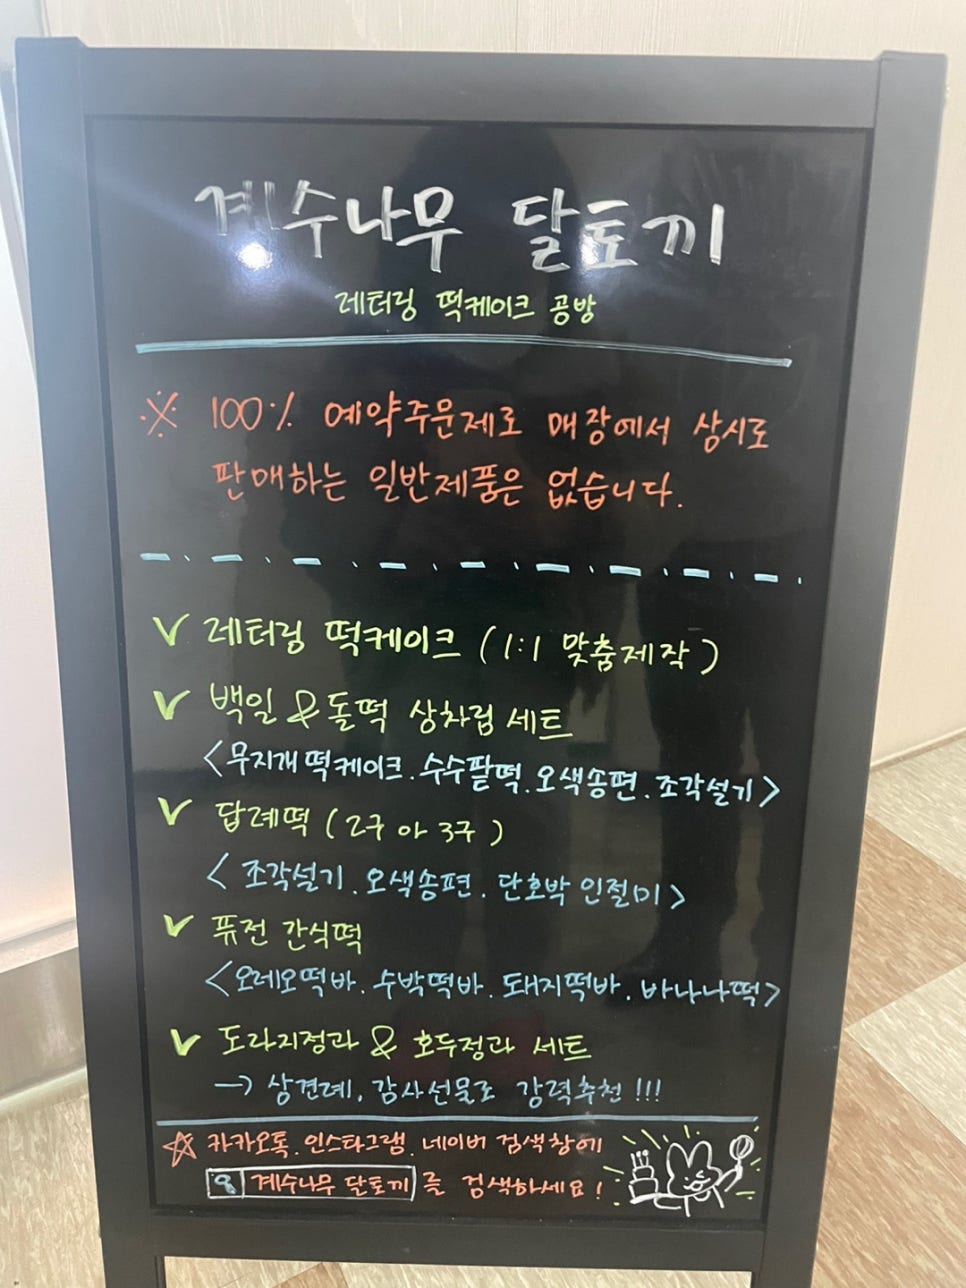 계수나무 달토끼
레터링 떡케이크 공방
※ 100% 예약주문제로 매장에서 상시로
판매하는 일반제품은 없습니다.
✓ 레터링 떡케이크 (1:1 맞춤제작)
✓ 백일 & 돌떡 상차림 세트
<무지개떡케이크. 수수팥떡. 오색송편. 조각설기>
✓ 답례떡 (2구 아 3구)
< 조각설기. 오색송편. 단호박 인절미>
✓ 퓨전 간식떡
<오레오떡바. 수박떡바. 돼지떡바. 바나나떡>
✓ 도라지정과 & 호두정과 세트
→ 상견례, 감사선물로 강력추천!!!
☆ 카카오톡. 인스타그램. 네이버 검색창에
계수나무 달토끼 를 검색하세요!